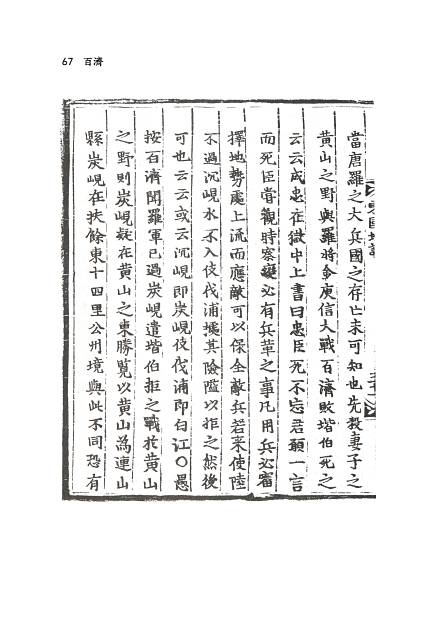 67 百濟
當唐羅之大兵國之存亡未可知也先殺妻子之
黃山之野與羅將金庾信大戰百濟敗堦伯死之
云云成忠在獄中上書曰忠臣死不忘君願一言
而死臣嘗觀時察變必有兵革之事凡用兵必審
擇地勢處上流而應敵可以保全敵兵若來使陸
不過沉峴水不入伎伐浦據其險隘以拒之然後
可也云云或云沉峴即炭峴伎伐浦即白江○愚
按百濟聞羅軍已過炭峴遣堦伯拒之戰於黃山
之野則炭峴疑在黃山之東勝覽以黃山為連山
縣炭峴在扶餘東十四里公州境與此不同恐有